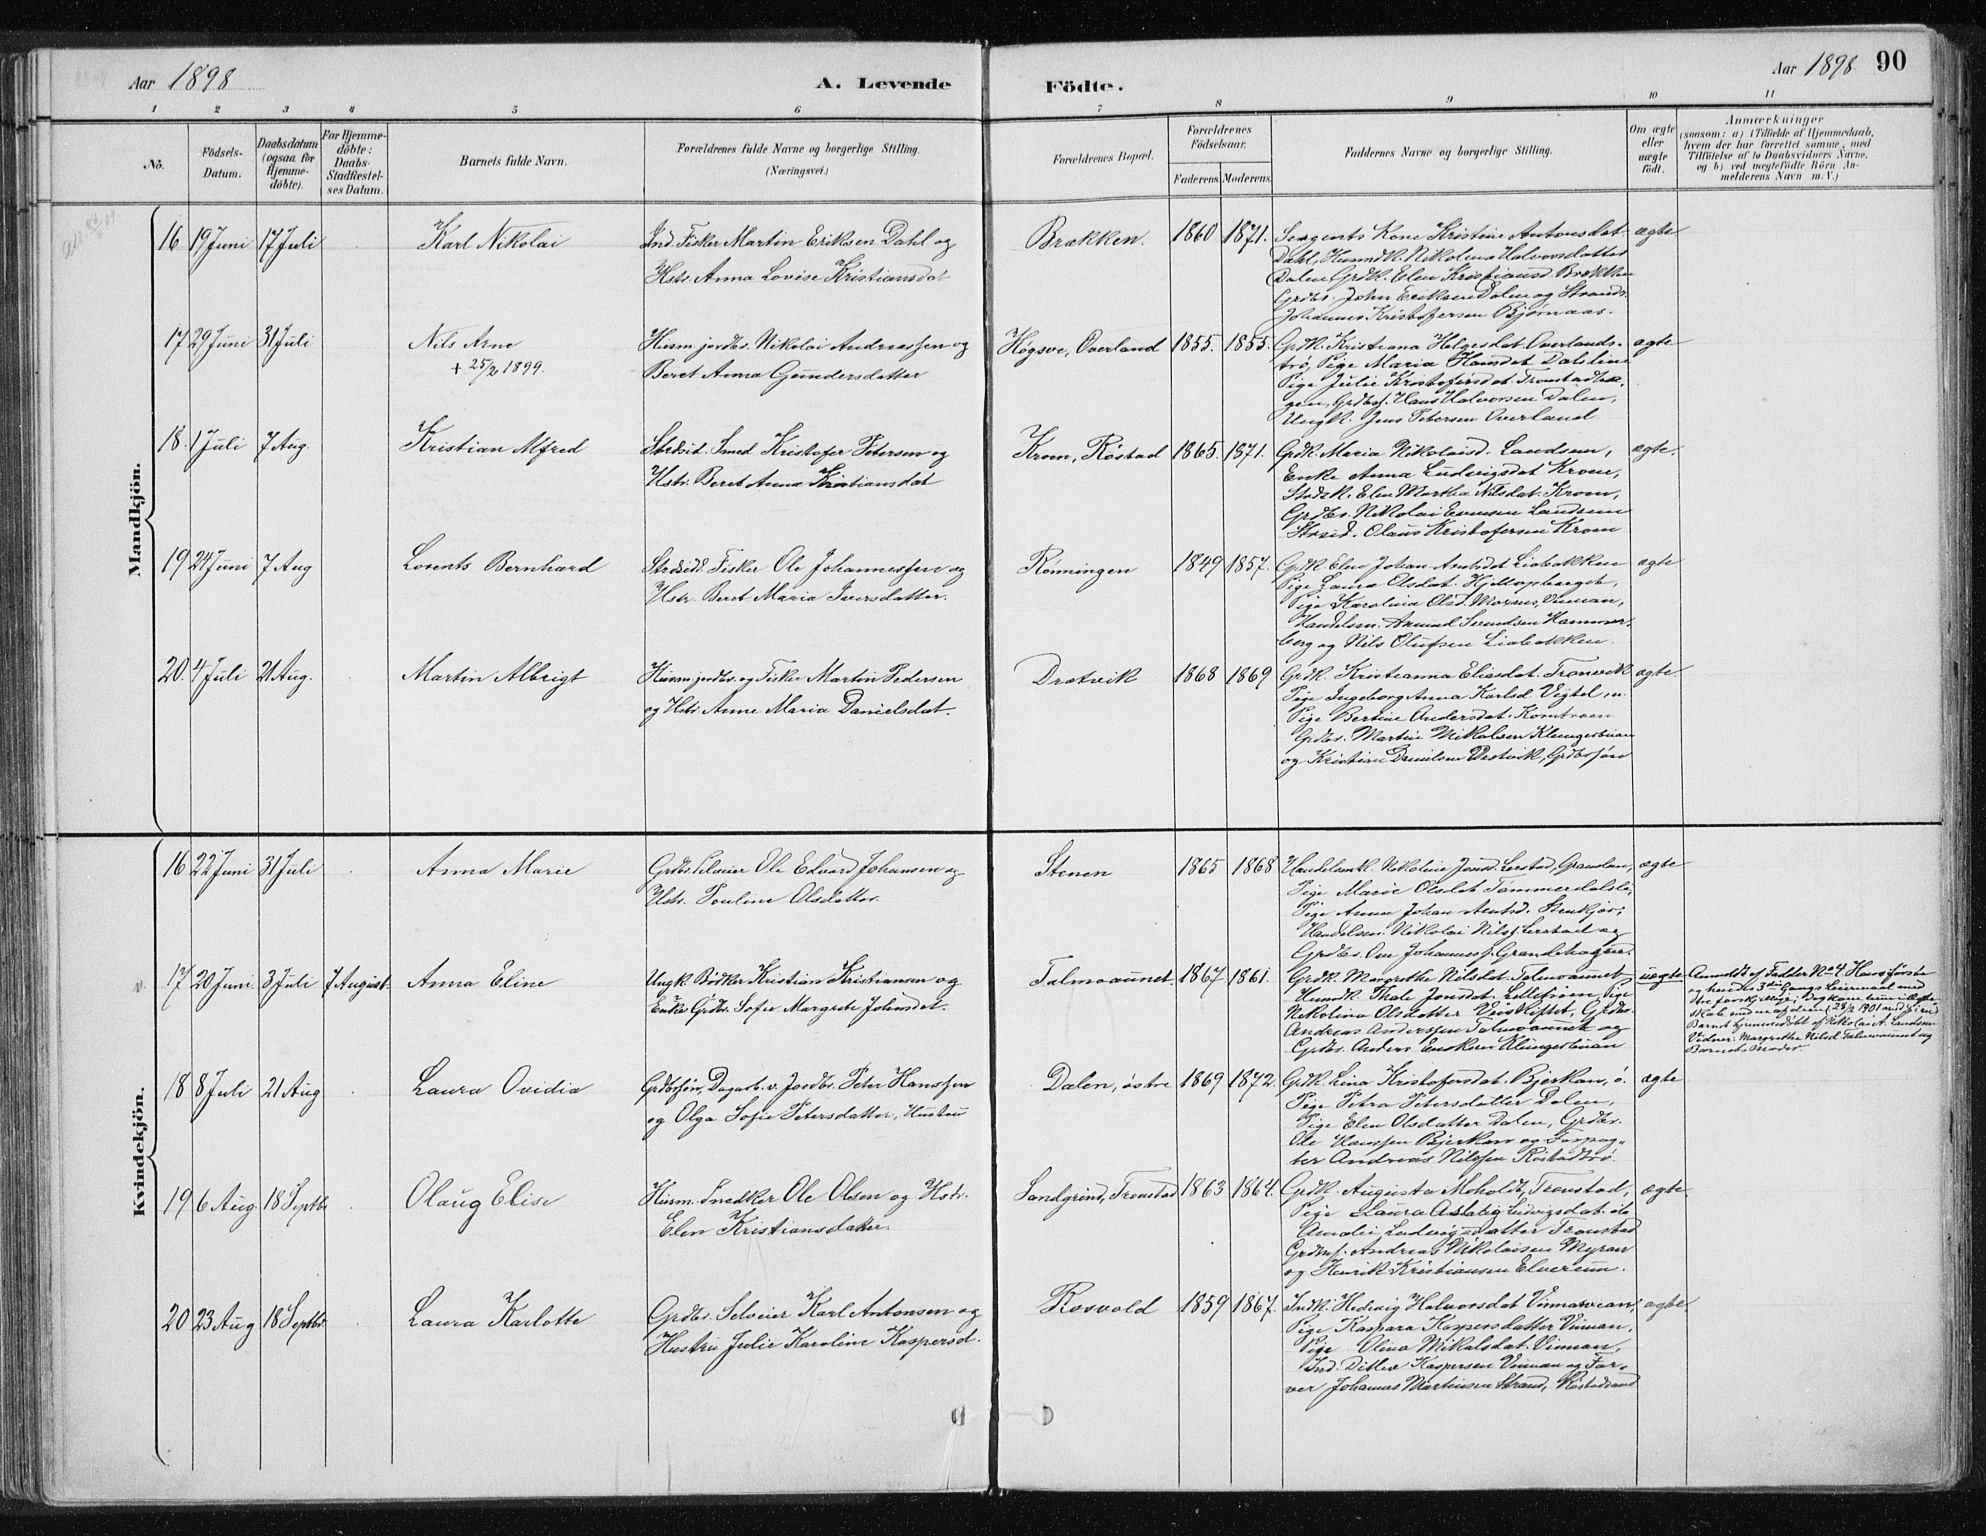 Aar 1898
A. Levende
Födte.
Aar 1898
90
1 2 3 4 5 6 7 8 9 10 11
No.
Födsels-
Datum.
Daabsdatum
(ogsaa for
Hjemme-
døbte).
For Hjemme-
døbte:
Daabs-
Stadfæstel-
ses Datum.
Barnets fulde Navn.
Forældrenes fulde Navne og borgerlige Stilling.
(Næringsvei.)
Forældrenes Bopæl.
Forældrenes
Födselsaar.
Faderens. Moderens.
Faddernes Navne og borgerlige Stilling.
Om ægte
eller
uægte
født.
Anmærkninger
(saasom: a) i Tilfælde af Hjemmedaab,
hvem der har forrettet samme, med
Tilföielse af to Daabsvidners Navne,
og b) ved uægtefödte Börn An-
melderens Navn m. V.)
Mandkjön.
16 19 Juni 17 Juli
Karl Nikolai
Ind. Fisker Martin Eriksen Dahl og
Hstr. Anna Lovise Kristiansdat
Brækken. 1860 1871.
Sergents Kone Kristine Antonsdat
Dahl, Husmdk. Nikolina Halvorsdatter
Dalen Grdk. Elen Kristiansd. Brækken
Grdbr. John Eriksen Dalen og Strands.
Johannes Kristofersen Bjørnaas.
ægte
17 29 Juni 31 Juli
Nils Arne
+ 25/2 1899.
Husm. jordbr. Nikolai Andreassen og
Beret Anna Gundersdatter
Høgsve, Overland 1855. 1855.
Grdk. Kristiana Helgesdat. Overlands-
trø, Pige Maria Hansdat Dalslien
Pige Julie Kristofersdat. Tronstadha-
gen, Grdbrs. Hans Halvorsen Dalen,
Ungk. Jens Petersen Overland.
ægte
18. 1 Juli 7 Aug.
Kristian Alfred
Strdsid. Smed Kristofer Petersen og
Hstr. Beret Anna Kristiansdat
Kroen, Røstad 1865. 1871.
Grdk. Maria Nikolaisd. Landsem,
Enke Anna Ludvigsdat Kroen,
Strdsk. Elen Martha Nilsdat. Kroen,
Grdbr. Nikolai Evensen Landsem
Strsid. Olaus Kristofersen Kroen
ægte.
19 24 Juni 7 Aug
Lorents Bernhard
Strdsidd. Fisker Ole Johannessen og
Hstr. Beret Maria Iversdatter.
Rønningen 1849 1857.
Grdk Elen Johan Arntsdat Liabakken
Pige Laura Olsdat.
Pige Karolina Olsd. Vinnan,
Handelsm. Arnund Hammer-
berg og Nils Olufsen Liabakken.
ægte
20. 4 Juli 21 Aug.
Martin Albrigt
Husm. jordbr. og Fisker Martin Pedersen
og Hstr. Anne Maria Danielsdat.
Drotvik 1868 1869
Grdk. Kristianna Eliasdat. Tronvik
Pige Ingeborg Anna Karlsd. Vigtel, n.
Pige Bertine Andersdat. Komtroen
Grdbr. Martin Mikalsen Klungerbuan
og Kristian Danielsen Drotvik, Grdbrsøn
ægte.
Kvindekjön.
16 22 Juni 31 Juli
Anna Marie
Grdbr. Selveier Ole Edvard Johansen og
Hstr. Pouline Olsdatter.
Stenen 1865 1868
Handelsmk. Nikoline Jonsd. Lerstad, Grandan,
Pige Marie Olsdat Tømmerdalsli,
Pige Anna Johan Arntsd. Stenkjær,
Handelsm. Nikolai Nilss. Lerstad og
Grdbr. Ove Johanness. Grandehagen.
ægte
17 20 Juni 3 Juli 7 August.
Anna Eline
Ungk. Bødker Kristian Kristiansen og
Enke Grdbr. Sofie Margrete Johnsdat.
Talmoaunet. 1867. 1861.
Grdk. Margrethe Nilsdat. Talmoaunet
Husmdk. Thale Jonsdat. Pige
Nikolina Olsdatter Grdbr.
Andreas Anderssen Talmoaunet og
Grdbr. Anders Klungerbuan
uægte
Anmeldt af Fadder No 4. Hans første
og hendes 3die Gangs Leiermaal med
tre forskjellige;
Barnet hjemmedøbt af Nikolai A. Landsem
Vidner: Margrethe Nilsd Talmoaunet og
Barnets Moder.
18 8 Juli 21 Aug
Laura Ovidia
Grdbrsøn, Dagarb. v. Jordbr. Peter Hanssen
og Olga Sofie Petersdatter, Hustru
Dalen, østre 1869 1872.
Grdk. Lina Kristofersdat. Bjerkan, ø.
Pige Petra Petersdatter Dalen,
Pige Elen Olsdatter Dalen, Grdbr.
Ole Hanssen Bjerkan og Forpag-
ter Andreas Nilssen Røstadtrø.
ægte
19 6 Aug. 18 Septbr.
Olaug Elise
Husm. Snedker Ole Olsen og Hstr.
Elen Kristiansdatter.
Sandgrind, Tronstad 1863 1864.
Grdk. Augusta Moholdt, Tronstad,
Pige Laura Aslabig Ludvigsdat. ib
Amalie Ludvigsdatter Tronstad
Grdbrs. Andreas Nikolaisen Myran
og Henrik Kristiansen Elverum.
ægte.
20 23 Aug 18 Septbr.
Laura Karlotte
Grdbr. Selveier Karl Antonsen og
Hustru Julie Karoline Kaspersd.
Rosvold 1859 1867.
Indk. Hedvig Halvorsdat
Pige Kaspara Kaspersdatter Vinnan,
Pige Olina Mikalsdat. Vinnan,
Ind. Ditlev Kaspersen Vinnan og Far-
ver Johannes Martinsen Strand, Røstadsand
ægte.